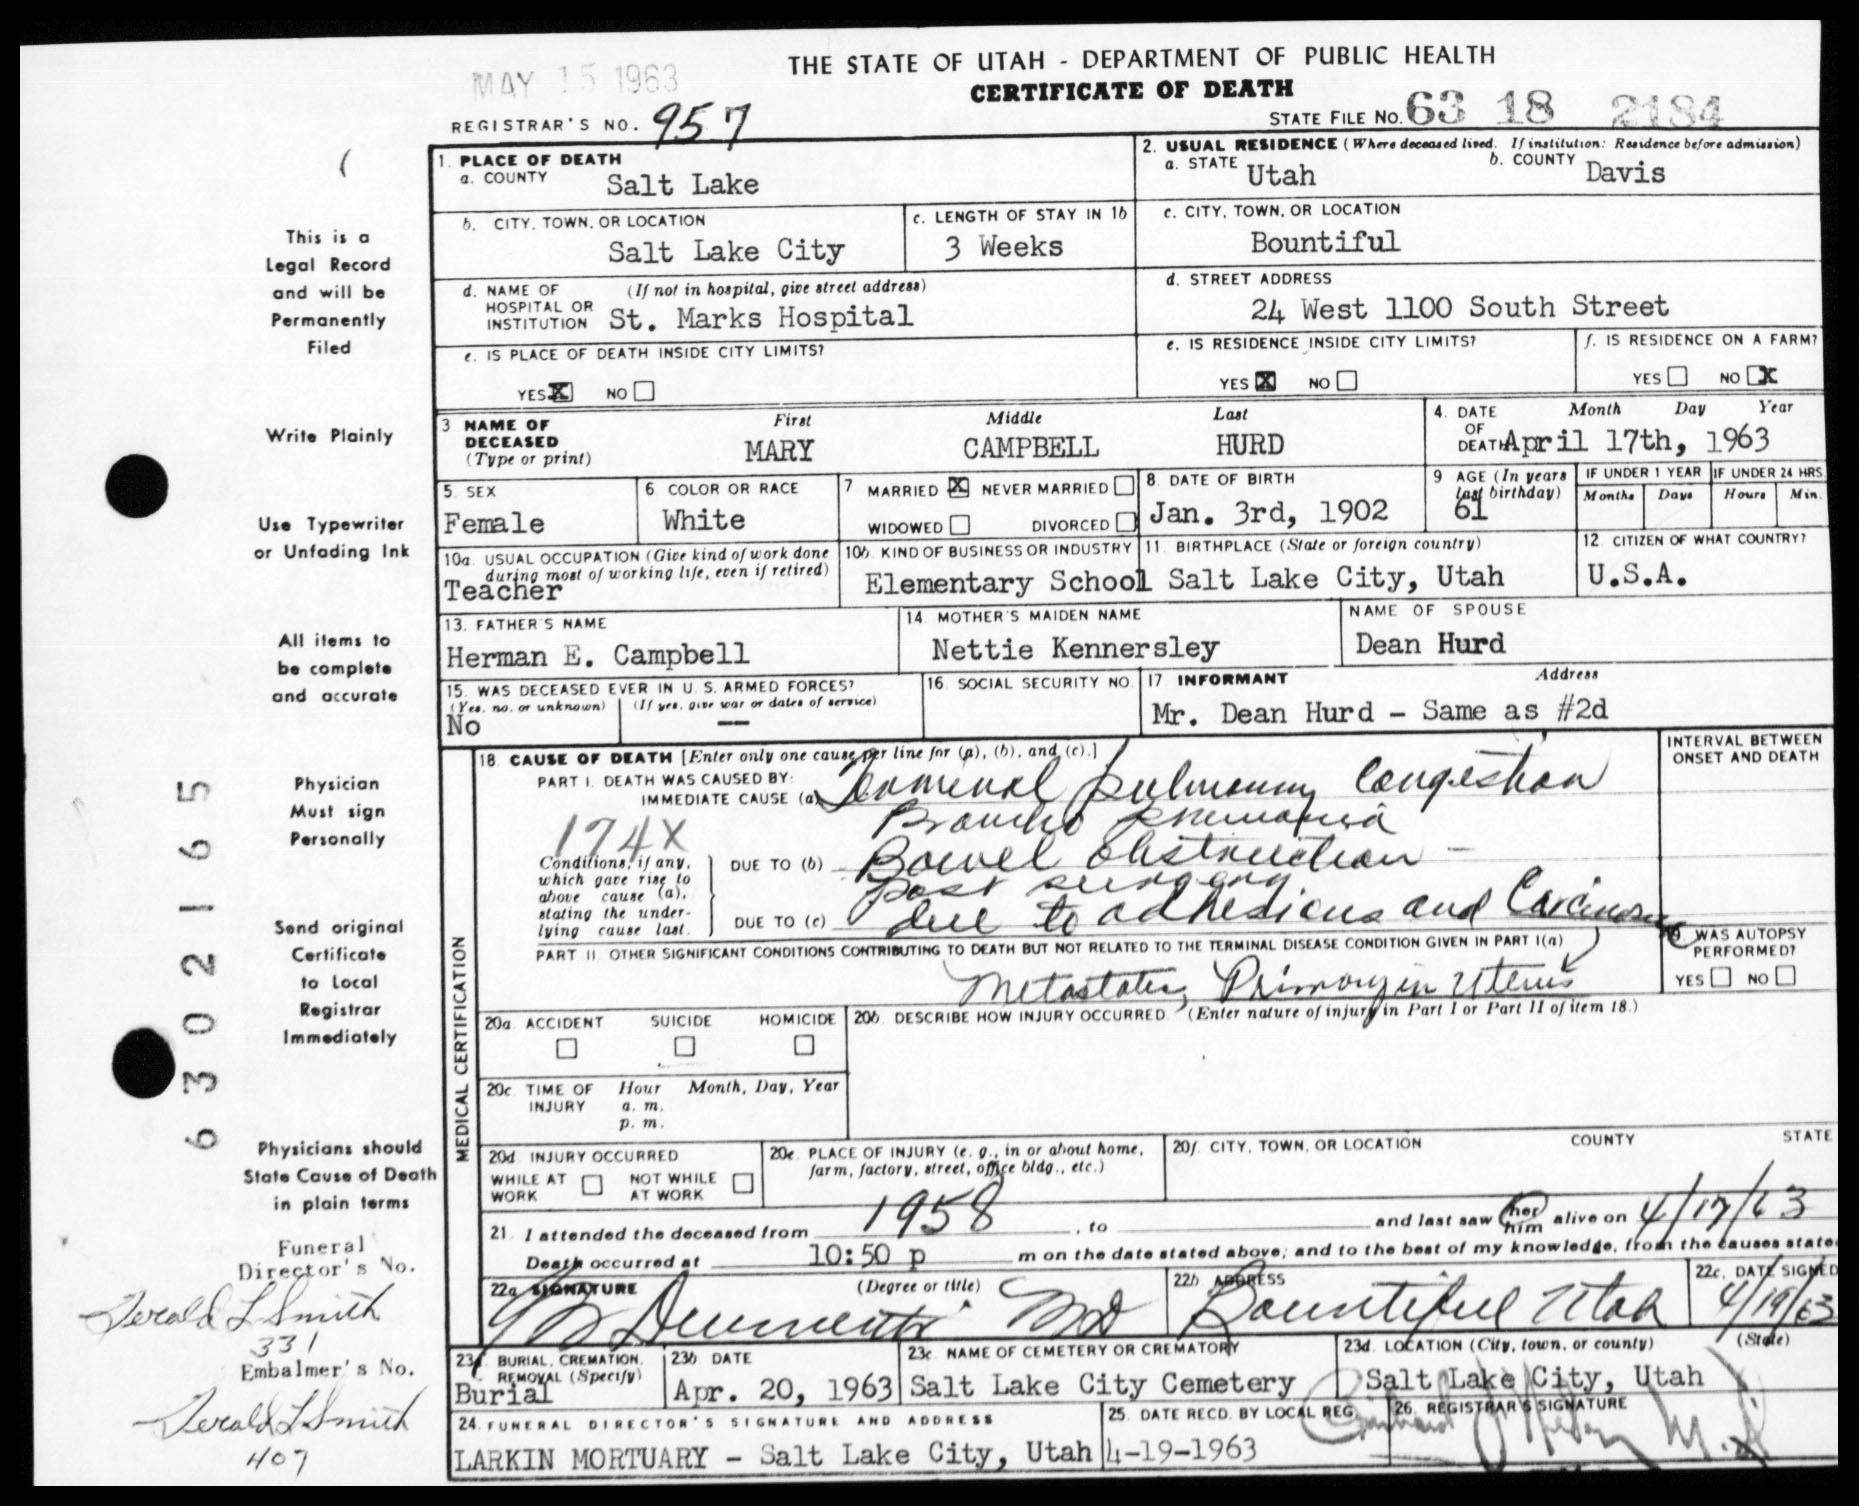 THE STATE OF UTAH - DEPARTMENT OF PUBLIC HEALTH
MAY 15 1963
CERTIFICATE OF DEATH
REGISTRAR'S NO. 957
STATE FILE NO. 63 18 2184
1. PLACE OF DEATH
a. COUNTY Salt Lake
2. USUAL RESIDENCE (Where deceased lived. If institution: Residence before admission)
a. STATE Utah b. COUNTY Davis
b. CITY, TOWN, OR LOCATION
Salt Lake City
c. LENGTH OF STAY IN 1b
3 Weeks
c. CITY, TOWN, OR LOCATION
Bountiful
d. NAME OF HOSPITAL OR INSTITUTION (If not in hospital, give street address)
St. Marks Hospital
d. STREET ADDRESS
24 West 1100 South Street
e. IS PLACE OF DEATH INSIDE CITY LIMITS?
YES X NO
e. IS RESIDENCE INSIDE CITY LIMITS?
YES X NO
f. IS RESIDENCE ON A FARM?
YES NO X
3 NAME OF DECEASED (Type or print)
First Middle Last
MARY CAMPBELL HURD
4. DATE OF DEATH Month Day Year
April 17th, 1963
5. SEX
Female
6 COLOR OR RACE
White
7 MARRIED X NEVER MARRIED
WIDOWED DIVORCED
8. DATE OF BIRTH
Jan. 3rd, 1902
9 AGE (In years last birthday)
61
IF UNDER 1 YEAR
Months Days
IF UNDER 24 HRS.
Hours Min.
10a. USUAL OCCUPATION (Give kind of work done during most of working life, even if retired)
Teacher
10b. KIND OF BUSINESS OR INDUSTRY
Elementary School
11. BIRTHPLACE (State or foreign country)
Salt Lake City, Utah
12. CITIZEN OF WHAT COUNTRY?
U.S.A.
13. FATHER'S NAME
Herman E. Campbell
14. MOTHER'S MAIDEN NAME
Nettie Kennersley
NAME OF SPOUSE
Dean Hurd
15. WAS DECEASED EVER IN U. S. ARMED FORCES?
(Yes, no, or unknown) (If yes, give war or dates of service)
No --
16. SOCIAL SECURITY NO.
17 INFORMANT Address
Mr. Dean Hurd - Same as #2d
MEDICAL CERTIFICATION
18. CAUSE OF DEATH [Enter only one cause per line for (a), (b), and (c).]
INTERVAL BETWEEN ONSET AND DEATH
PART I. DEATH WAS CAUSED BY:
IMMEDIATE CAUSE (a) Terminal pulmonary Congestion
Broncho pneumonia
174X
Conditions, if any, which gave rise to above cause (a), stating the underlying cause last.
DUE TO (b) Bowel obstruction -
post surgery
DUE TO (c) due to adhesions and Carcinoma
PART II. OTHER SIGNIFICANT CONDITIONS CONTRIBUTING TO DEATH BUT NOT RELATED TO THE TERMINAL DISEASE CONDITION GIVEN IN PART I(a)
Metastates, Primary in Uterus
19 WAS AUTOPSY PERFORMED?
YES NO
20a. ACCIDENT SUICIDE HOMICIDE
20b. DESCRIBE HOW INJURY OCCURRED (Enter nature of injury in Part I or Part II of item 18.)
20c TIME OF INJURY Hour Month, Day, Year
a. m.
p. m.
20d INJURY OCCURRED
WHILE AT WORK NOT WHILE AT WORK
20e. PLACE OF INJURY (e. g., in or about home, farm, factory, street, office bldg., etc.)
20f. CITY, TOWN, OR LOCATION COUNTY STATE
21. I attended the deceased from 1958, to and last saw her him alive on 4/17/63
Death occurred at 10:50 p m on the date stated above; and to the best of my knowledge, from the causes state
22a SIGNATURE (Degree or title)
MD
22b ADDRESS
Bountiful Utah
22c. DATE SIGNED
4/19/63
23a BURIAL, CREMATION, REMOVAL (Specify)
Burial
23b. DATE
Apr. 20, 1963
23c NAME OF CEMETERY OR CREMATORY
Salt Lake City Cemetery
23d. LOCATION (City, town, or county) (State)
Salt Lake City, Utah
24. FUNERAL DIRECTOR'S SIGNATURE AND ADDRESS
LARKIN MORTUARY - Salt Lake City, Utah
25. DATE RECD. BY LOCAL REG.
4-19-1963
26. REGISTRAR'S SIGNATURE
M.D.
This is a
Legal Record
and will be
Permanently
Filed
Write Plainly
Use Typewriter
or Unfading Ink
All items to
be complete
and accurate
Physician
Must sign
Personally
Send original
Certificate
to Local
Registrar
Immediately
Physicians should
State Cause of Death
in plain terms
6302165
Funeral
Director's No.
Gerald L Smith
331
Embalmer's No.
Gerald L Smith
407